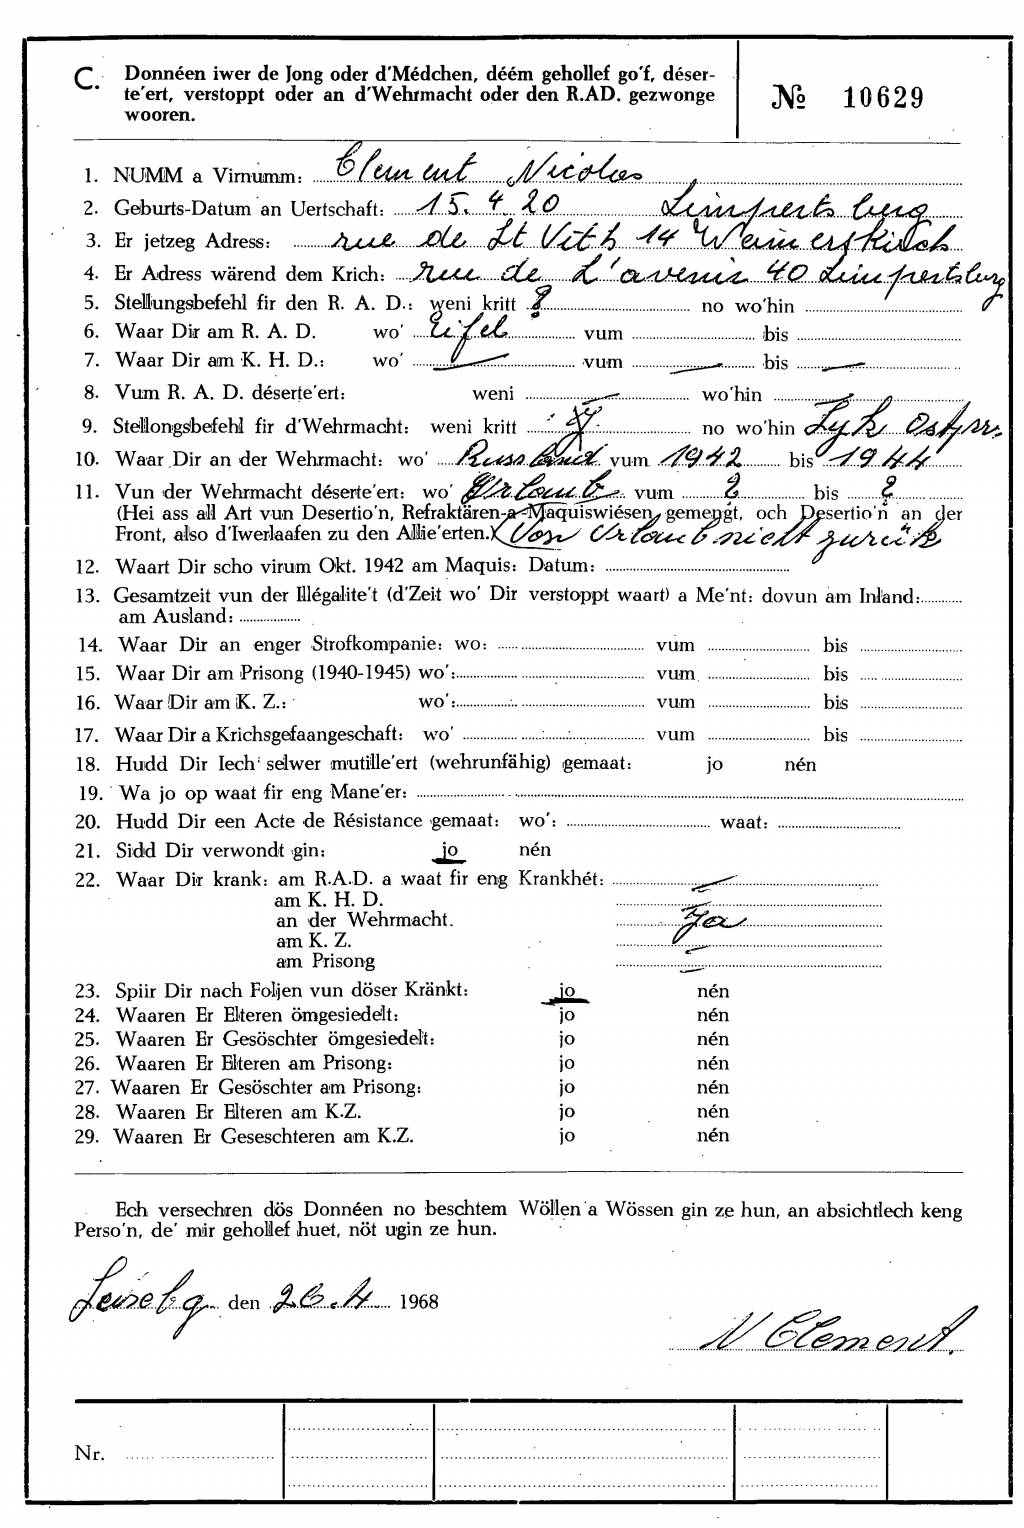 C. Donnéen iwer de Jong oder d'Médchen, déém gehollef go'f, déser-
te'ert, verstoppt oder an d'Wehrmacht oder den R.AD. gezwonge
wooren.
№ 10629
1. NUMM a Virnumm: Clement Nicolas
2. Geburts-Datum an Uertschaft: 15. 4 20 Limpertsberg
3. Er jetzeg Adress: rue de St Vith 14 Weimerskirch
4. Er Adress wärend dem Krich: rue de L'avenir 40 Limpertsburg
5. Stellungsbefehl fir den R. A. D.: weni kritt ? no wo'hin
6. Waar Dir am R. A. D. wo' Eifel vum bis
7. Waar Dir am K. H. D.: wo' — vum — bis —
8. Vum R. A. D. déserte'ert: weni — wo'hin —
9. Stellongsbefehl fir d'Wehrmacht: weni kritt ? no wo'hin Lyk Ostpr.
10. Waar Dir an der Wehrmacht: wo' Russland vum 1942 bis 1944
11. Vun der Wehrmacht déserte'ert: wo' Urlaub vum ? bis ?
(Hei ass all Art vun Desertio'n, Refraktären-a-Maquiswiésen gemengt, och Desertio'n an der
Front, also d'Iwerlaafen zu den Allie'erten.) Von Urlaub nicht zurük
12. Waart Dir scho virum Okt. 1942 am Maquis: Datum:
13. Gesamtzeit vun der Illégalite't (d'Zeit wo' Dir verstoppt waart) a Me'nt: dovun am Inland:
am Ausland:
14. Waar Dir an enger Strofkompanie: wo: vum bis
15. Waar Dir am Prisong (1940-1945) wo': vum bis
16. Waar Dir am K. Z.: wo': vum bis
17. Waar Dir a Krichsgefaangeschaft: wo' vum bis
18. Hudd Dir Iech selwer mutille'ert (wehrunfähig) gemaat: jo nén
19. Wa jo op waat fir eng Mane'er:
20. Hudd Dir een Acte de Résistance gemaat: wo': waat:
21. Sidd Dir verwondt gin: jo nén
22. Waar Dir krank: am R.A.D. a waat fir eng Krankhét: —
am K. H. D. —
an der Wehrmacht. Ja
am K. Z. —
am Prisong —
23. Spiir Dir nach Foljen vun döser Kränkt: jo nén
24. Waaren Er Elteren ömgesiedelt: jo nén
25. Waaren Er Gesöschter ömgesiedelt: jo nén
26. Waaren Er Elteren am Prisong: jo nén
27. Waaren Er Gesöschter am Prisong: jo nén
28. Waaren Er Elteren am K.Z. jo nén
29. Waaren Er Geseschteren am K.Z. jo nén
Ech versechren dös Donnéen no beschtem Wöllen a Wössen gin ze hun, an absichtlech keng
Perso'n, de' mir gehollef huet, nöt ugin ze hun.
den 26.4 1968
N Clement.
Nr.